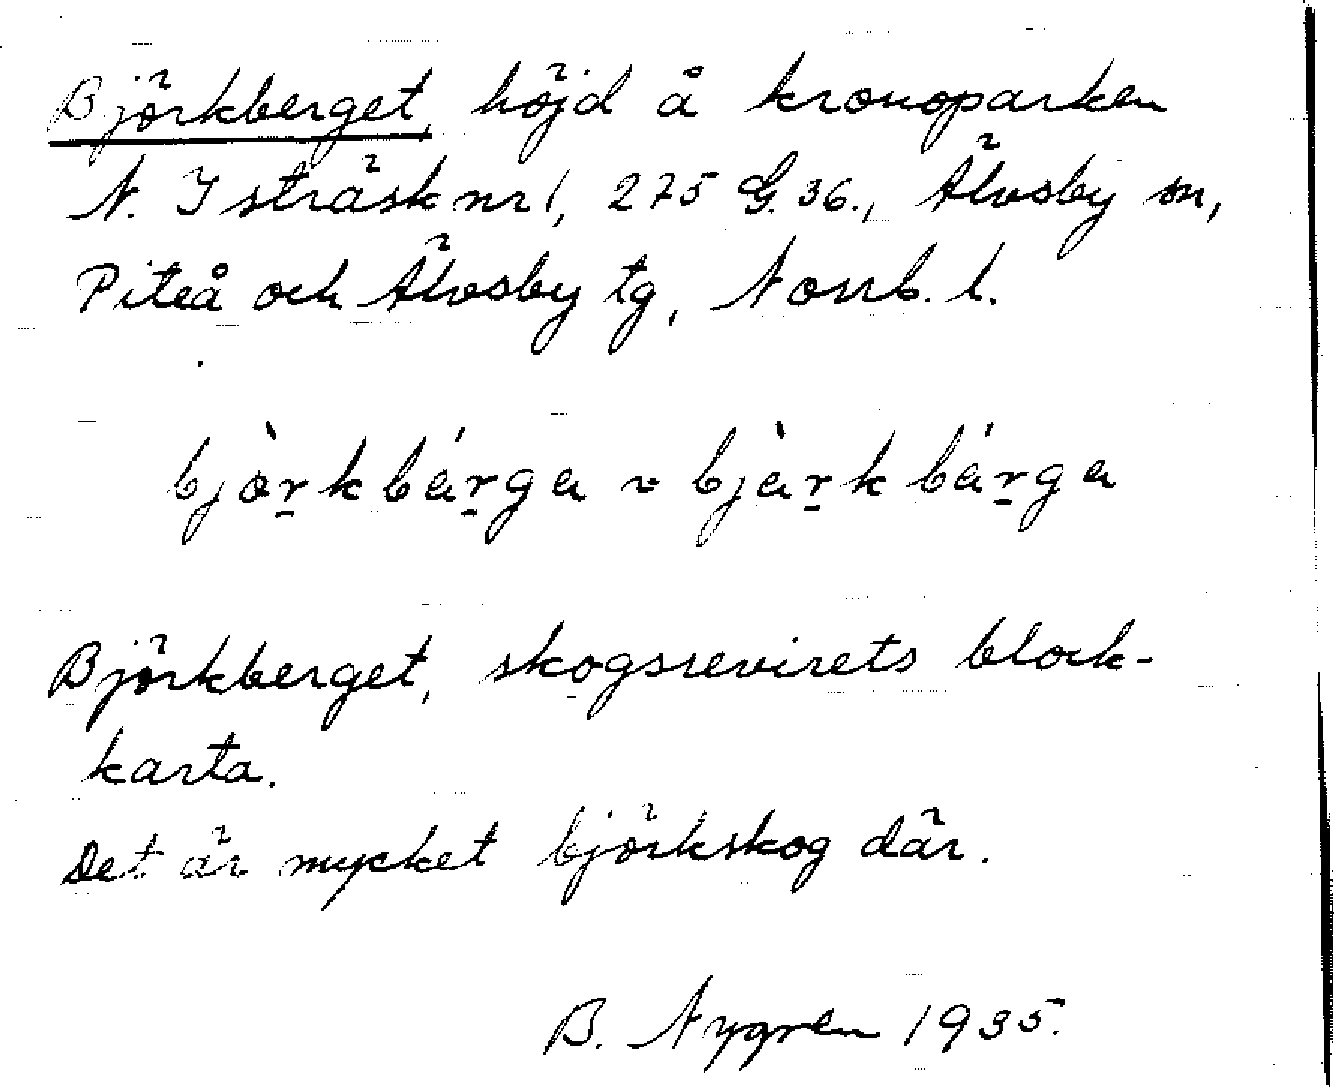 Björkberget, höjd å kronoparken
N. Isträsk nr 1, 275 G. 36., Älvsby sn,
Piteå och Älvsby tg, Norrb. l.
bjòr̠kbár̠ga ~ bjàr̠kbár̠ga
Björkberget, skogsrevirets block-
karta.
Det är mycket björkskog där.
B. Nygren 1935.